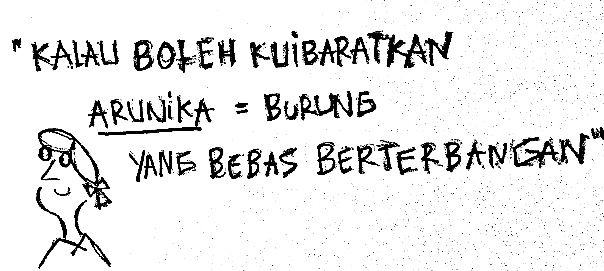 "KALAU BOLEH KUIBARATKAN
ARUNIKA = BURUNG
YANG BEBAS BERTERBANGAN"